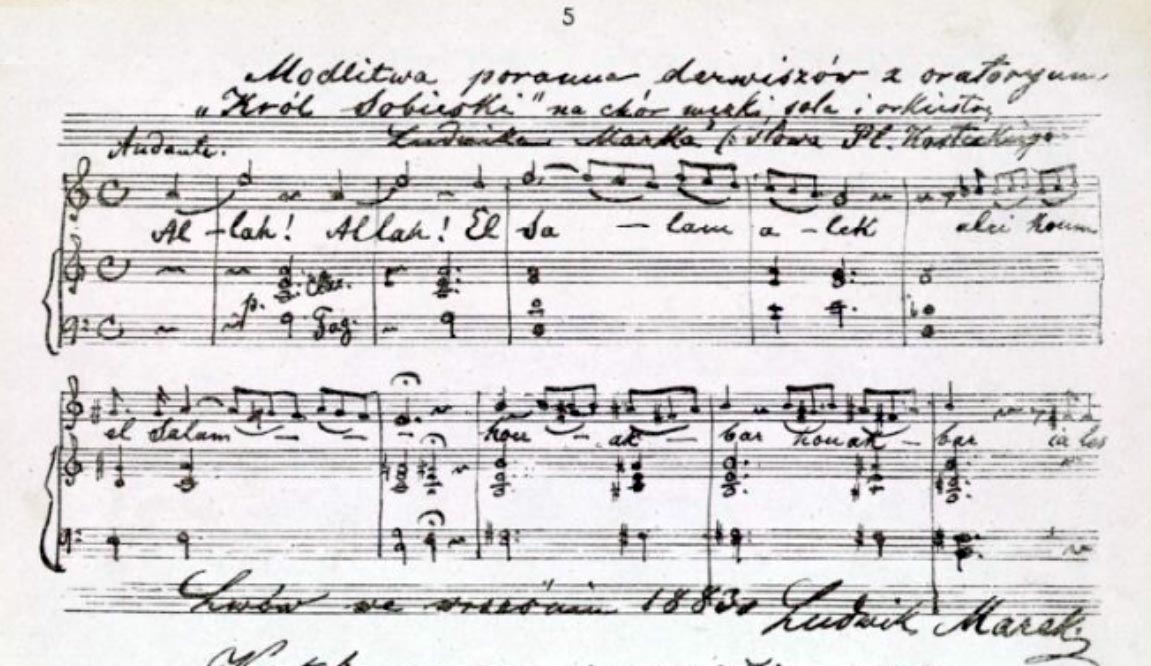 5
Modlitwa poranna derwiszów z oratoryum
„Król Sobieski" na chór męzki, sola i orkiestrę
Ludwika Marka (: słowa Pl. Kosteckiego
Andante.
Al - lah! Allah! El Sa - lam a - lek alei koum
p. Clar.
Fag.
el Salam - - - kou - ak - bar kouak - bar ia les
Lwów we wrześniu 1883r Ludwik Marek